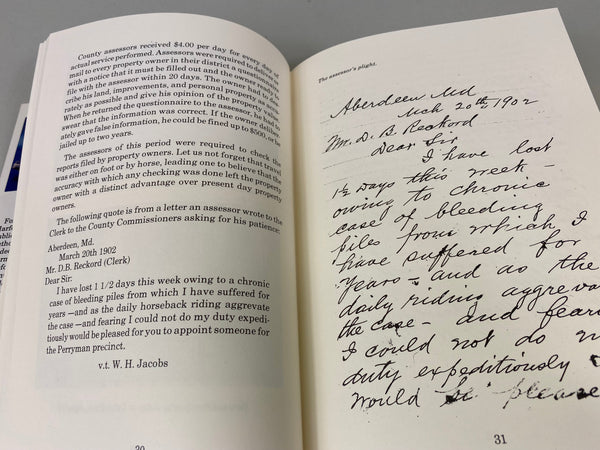 County assessors received $4.00 per day for every day of
actual service performed. Assessors were required to deliver or
mail to every property owner in their district a questionnaire
with a notice that it must be filled out and the owner ready to
file with the assessor within 20 days. The owner had to des-
cribe his land, improvements, and personal property as accu-
rately as possible and give his opinion of the property value.
When he returned the questionnaire to the assessor, he had to
swear that the information was correct. If the owner deliber-
ately gave false information, he could be fined up to $500, or be
jailed up to two years.
The assessors of this period were required to check the
reports filed by property owners. Let us not forget that travel
was either on foot or by horse, leading one to believe that the
accuracy with which any checking was done left the property
owner with a distinct advantage over present day property
owners.
The following quote is from a letter an assessor wrote to the
Clerk to the County Commissioners asking for his patience:
Aberdeen, Md.
March 20th 1902
Mr. D.B. Reckord (Clerk)
Dear Sir:
I have lost 1 1/2 days this week owing to a chronic
case of bleeding piles from which I have suffered for
years—and as the daily horseback riding aggrevate
the case—and fearing I could not do my duty expedi-
tiously would be pleased for you to appoint someone for
the Perryman precinct.
v.t. W. H. Jacobs
30
The assessor's plight.
Aberdeen Md
Mch 20th, 1902
Mr. D. B. Reckord
Dear Sir
I have lost
1½ days this week -
owing to chronic
case of bleeding
piles from which I
have suffered for
years - and as the
daily riding aggreva
the case - and fear
I could not do m
duty expeditiously
would be please
31